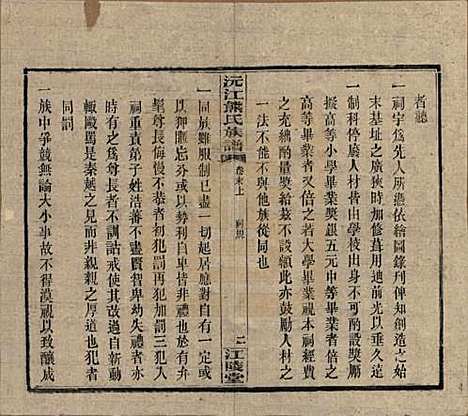 者聽
一祠宇為先人所憑依繪圖錄刋俾知創造之始
末基址之廣狹時加修葺用迪前光以垂久遠
一制科停廢人材皆由學校出身不可不酌設獎勵
擬高等小學畢業獎銀五元中等畢業者倍之
高等畢業者又倍之若大學畢業視本祠經費
之充絀酌量獎給茲不設額此亦鼓勵人材之
一法不能不與他族從同也
沅江熊氏族譜
卷末上
祠規
二
江陵堂
一同族雖服制已盡一切起居應對自有一定或
以狎匪忘分或以勢利自尊皆非禮也所有卑
幼尊長侮慢不恭者初犯罰再犯加罰三犯
祠重責弟子姓浩蕃亦有尊賢智卑幼失禮者亦
時有之為尊長者不訓詁戒使其改過自新動
輒毆罵是秦越之見而非親親之厚道也犯者
同罰
一族中爭競無論大小事故不得漠視以致釀成